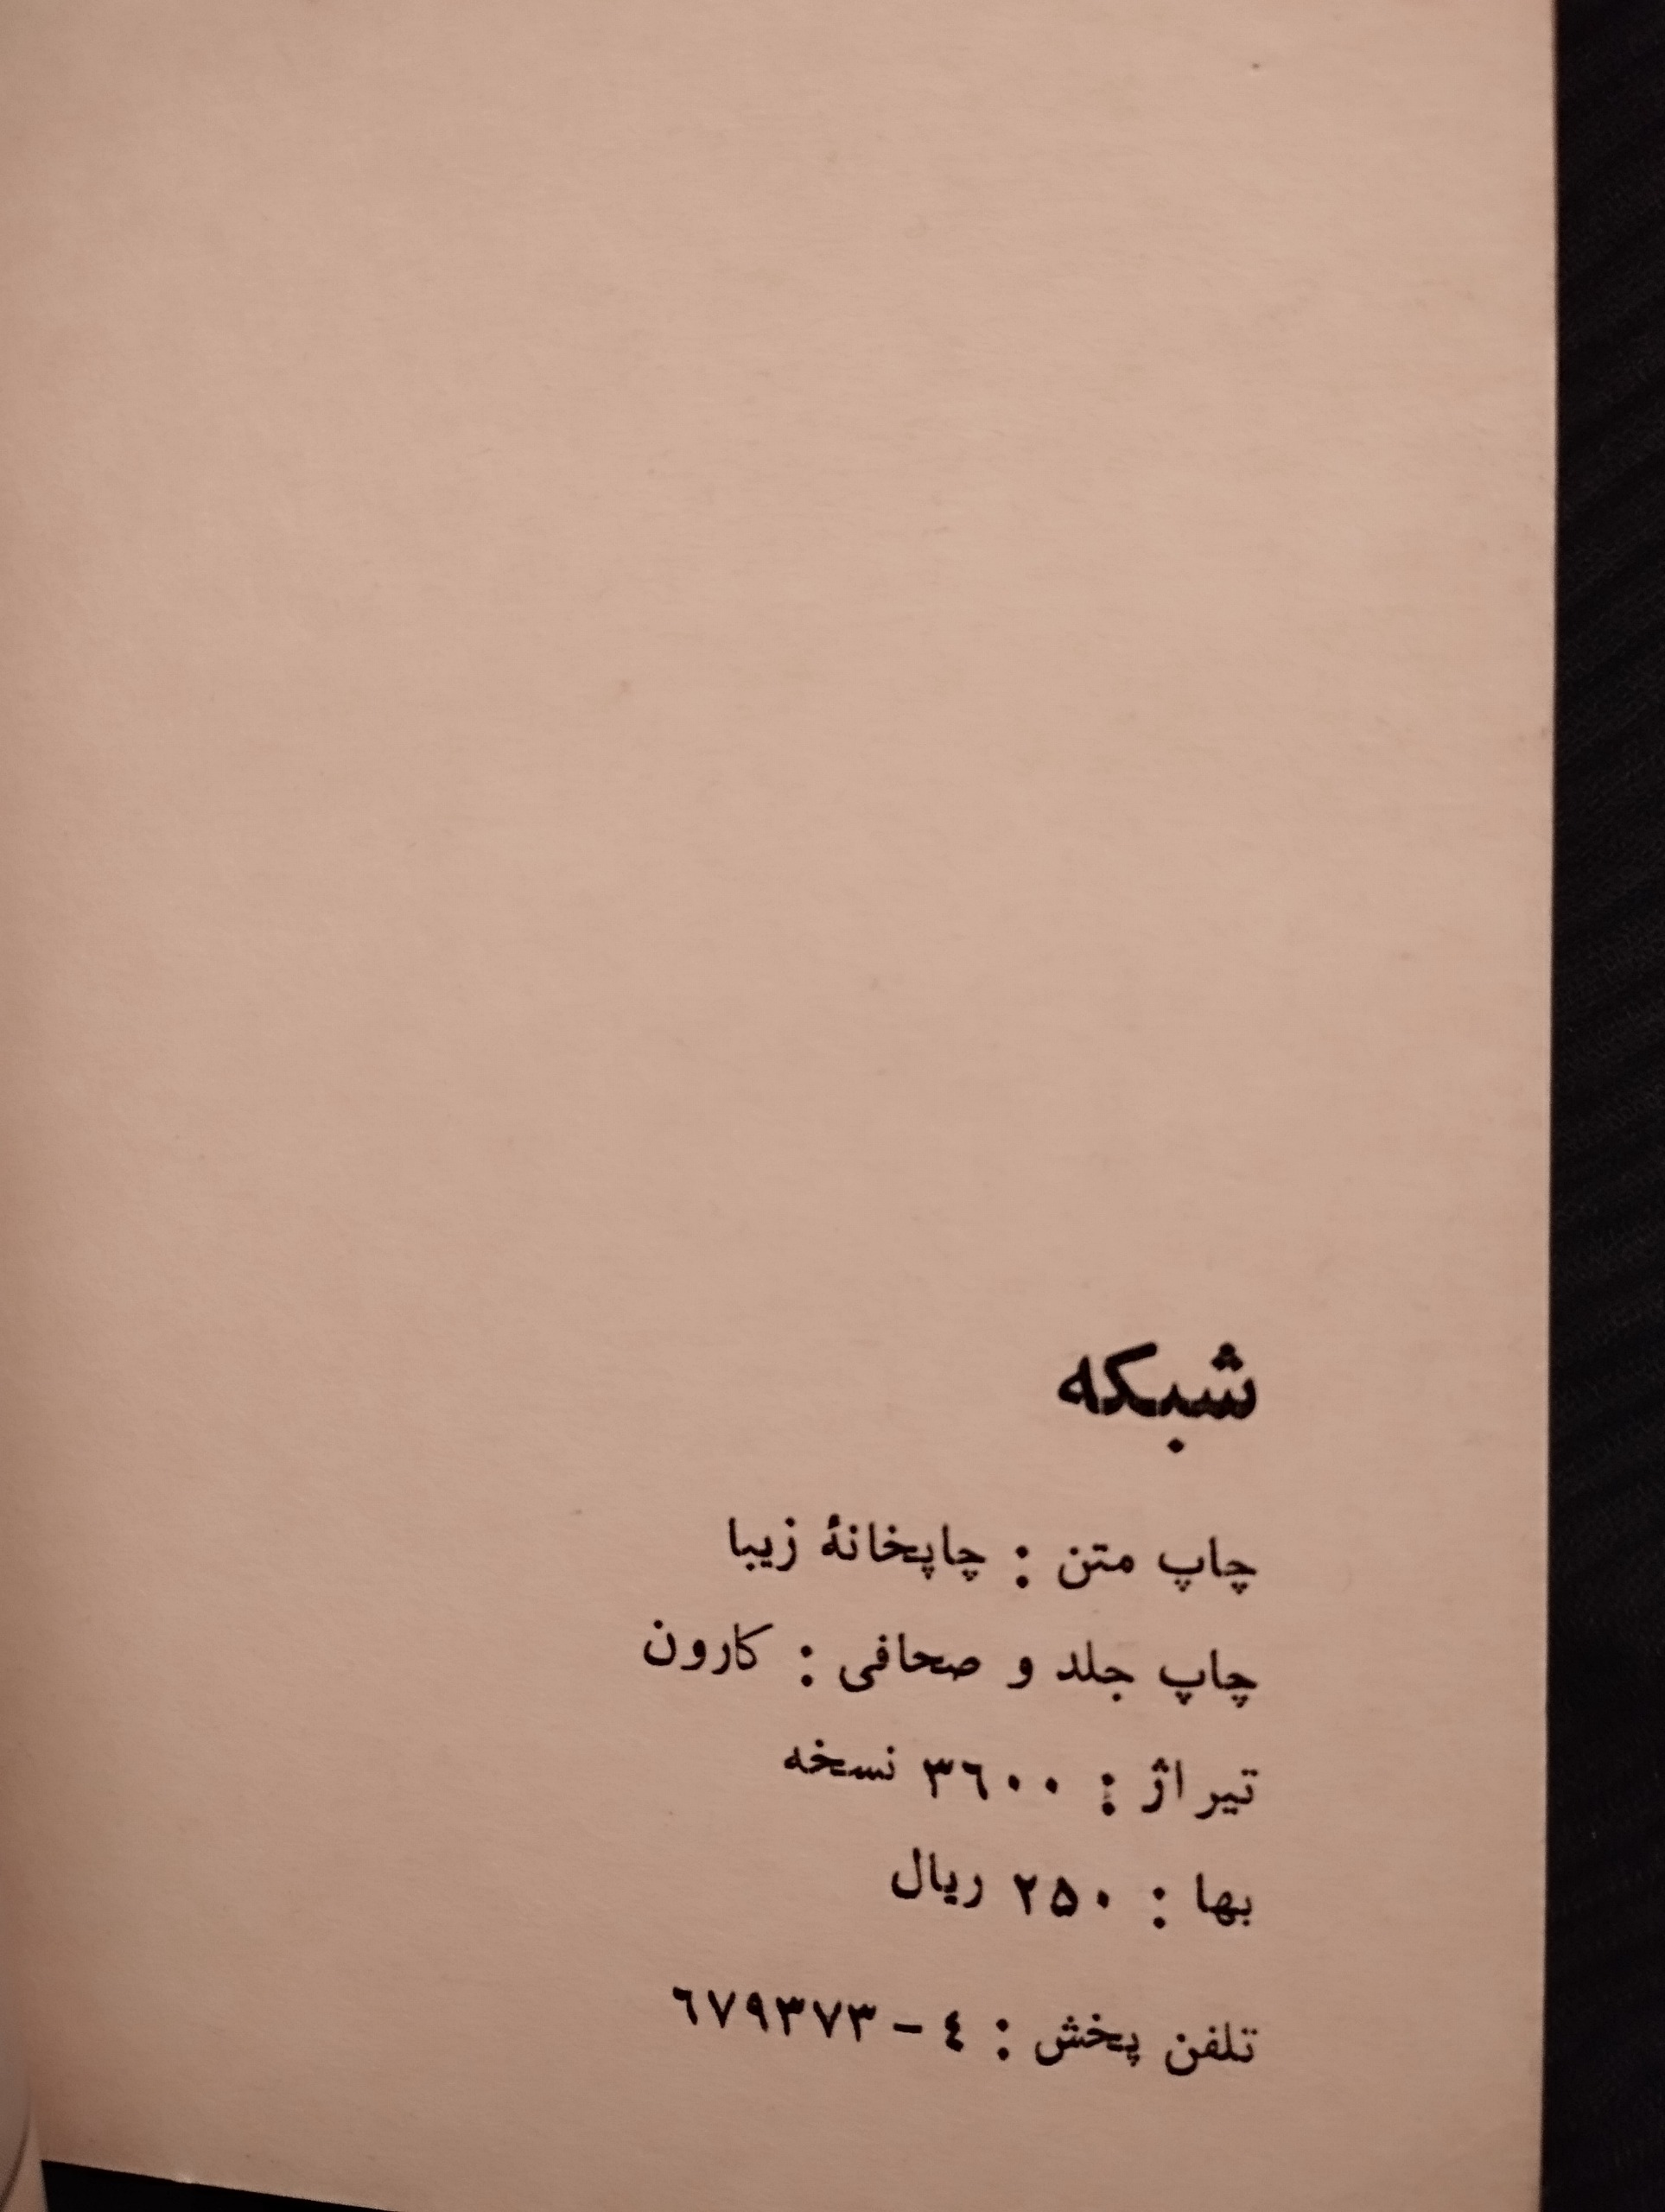 شبکه
چاپ متن : چاپخانهٔ زیبا
چاپ جلد و صحافی : کارون
تیراژ : ۳٦۰۰ نسخه
بها : ۲۵۰ ریال
تلفن پخش : ٤ – ٦۷۹۳۷۳